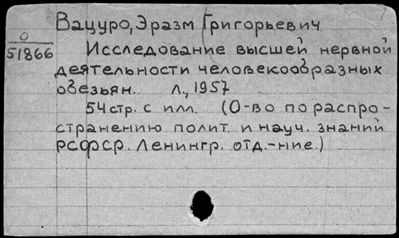 Вацуро, Эразм Григорьевич
О
51866
Исследование высшей нервной
деятельности человекообразных
обезьян. Л., 1957
54 стр. с илл. (О-во по распро-
странению полит. и науч. знаний
РСФСР. Ленингр. отд.-ние.)